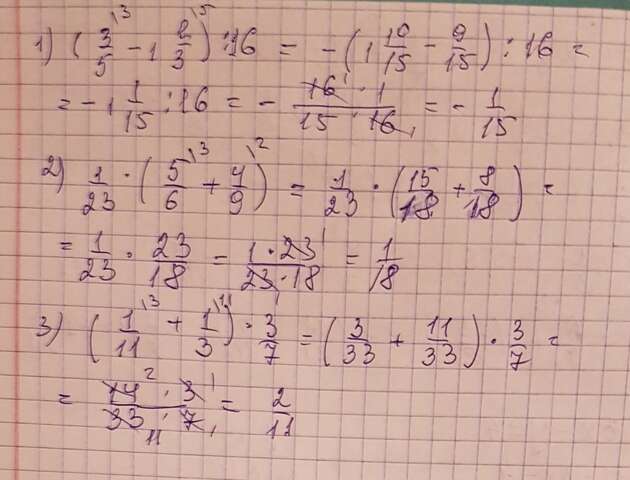 1) (3/5\3 − 1 2/3\5) : 16 = −(1 10/15 − 9/15) : 16 =
= −1 1/15 : 16 = − 16 1 · 1 / 15 · 16 1 = − 1/15
2) 1/23 · (5/6\3 + 4/9\2) = 1/23 · (15/18 + 8/18) =
= 1/23 · 23/18 = 1 · 23 1 / 23 · 18 = 1/18
3) (1/11\3 + 1/3\11) · 3/7 = (3/33 + 11/33) · 3/7 =
= 14 2 · 3 1 / 33 11 · 7 1 = 2/11